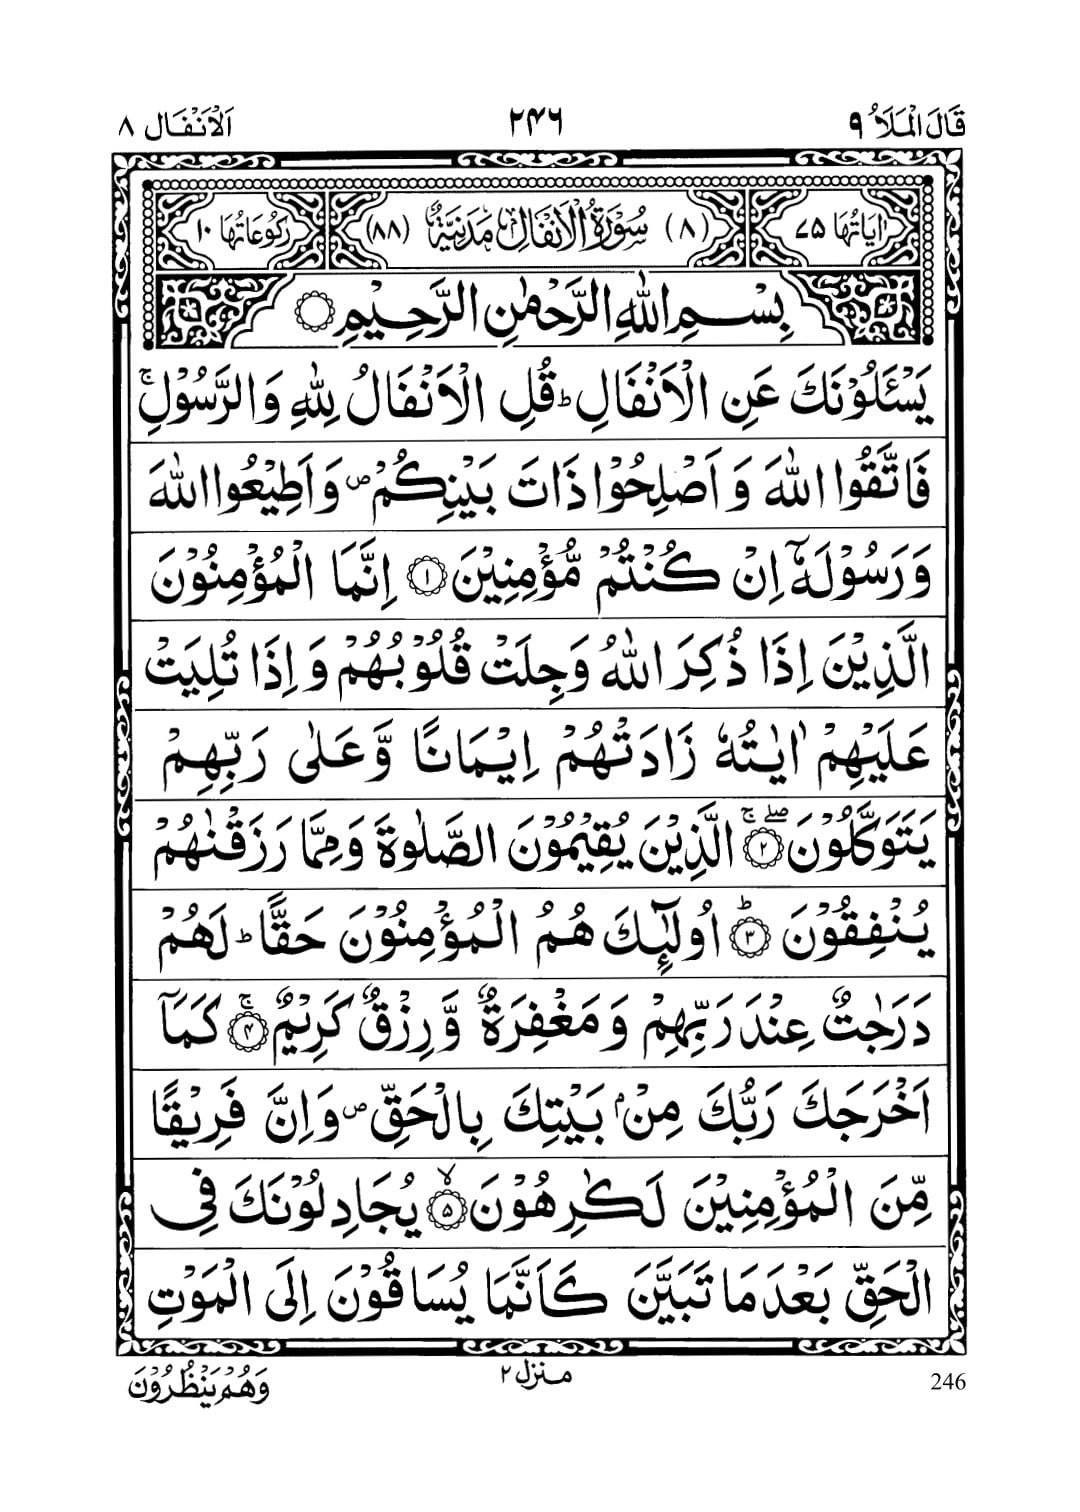 قَالَ الْمَلَاُ ۹
۲۴۶
اَلْاَنْفَال ۸
اٰیَاتُهَا ۷۵
(۸) سُوْرَةُ الْاَنْفَالِ مَدَنِيَّةٌ (۸۸)
رُكُوْعَاتُهَا ۱۰
بِسْمِ اللّٰهِ الرَّحْمٰنِ الرَّحِيْمِ ۝
يَسْـَٔلُوْنَكَ عَنِ الْاَنْفَالِ ؕ قُلِ الْاَنْفَالُ لِلّٰهِ وَالرَّسُوْلِ ۚ
فَاتَّقُوا اللّٰهَ وَاَصْلِحُوْا ذَاتَ بَيْنِكُمْ ۪ وَاَطِيْعُوا اللّٰهَ
وَرَسُوْلَهٗۤ اِنْ كُنْتُمْ مُّؤْمِنِيْنَ ۝۱ اِنَّمَا الْمُؤْمِنُوْنَ
الَّذِيْنَ اِذَا ذُكِرَ اللّٰهُ وَجِلَتْ قُلُوْبُهُمْ وَاِذَا تُلِيَتْ
عَلَيْهِمْ اٰيٰتُهٗ زَادَتْهُمْ اِيْمَانًا وَّعَلٰى رَبِّهِمْ
يَتَوَكَّلُوْنَ ۖۚ ۝۲ الَّذِيْنَ يُقِيْمُوْنَ الصَّلٰوةَ وَمِمَّا رَزَقْنٰهُمْ
يُنْفِقُوْنَ ؕ ۝۳ اُولٰٓئِكَ هُمُ الْمُؤْمِنُوْنَ حَقًّا ؕ لَهُمْ
دَرَجٰتٌ عِنْدَ رَبِّهِمْ وَمَغْفِرَةٌ وَّرِزْقٌ كَرِيْمٌ ۚ ۝۴ كَمَاۤ
اَخْرَجَكَ رَبُّكَ مِنْۢ بَيْتِكَ بِالْحَقِّ ۪ وَاِنَّ فَرِيْقًا
مِّنَ الْمُؤْمِنِيْنَ لَكٰرِهُوْنَ ۙ ۝۵ يُجَادِلُوْنَكَ فِى
الْحَقِّ بَعْدَ مَا تَبَيَّنَ كَاَنَّمَا يُسَاقُوْنَ اِلَى الْمَوْتِ
وَهُمْ يَنْظُرُوْنَ
منزل ۲
246